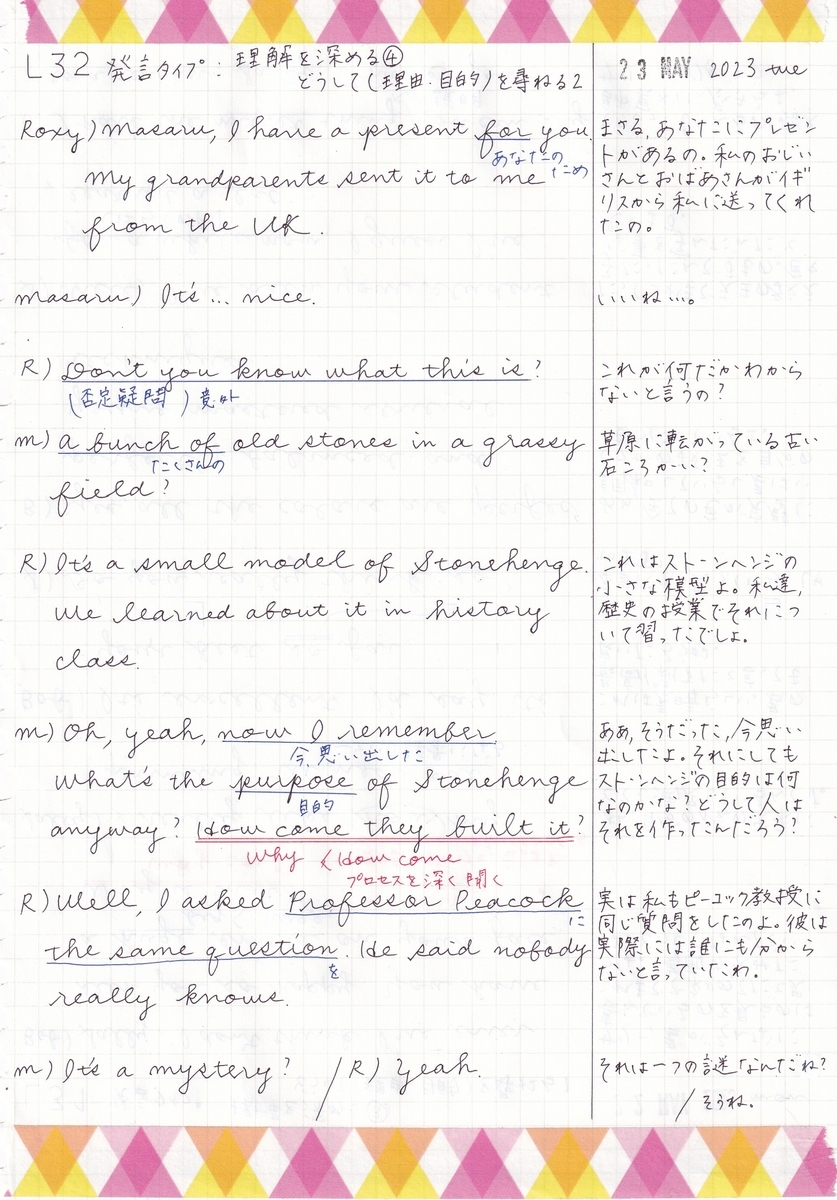 L32 発言タイプ: 理解を深める④
どうして(理由・目的)を尋ねる2
23 MAY 2023 tue
Roxy) Masaru, I have a present for you.
あなたのため
My grandparents sent it to me
from the UK.
まさる, あなたにプレゼン
トがあるの。私のおじい
さんとおばあさんがイギ
リスから私に送ってくれ
たの。
Masaru) It's ... nice.
いいね…。
R) Don't you know what this is?
(否定疑問) 意外
これが何だかわから
ないと言うの?
M) A bunch of old stones in a grassy
たくさんの
field?
草原に転がっている古い
石ころかい?
R) It's a small model of Stonehenge.
We learned about it in history
class.
これはストーンヘンジの
小さな模型よ。私達,
歴史の授業でそれにつ
いて習ったでしょ。
M) Oh, yeah, now I remember
今、思い出した
What's the purpose of Stonehenge
目的
anyway? How come they built it?
Why < How come
プロセスを深く聞く
ああ, そうだった, 今思い
出したよ。それにしても
ストーンヘンジの目的は何
なのかな? どうして人は
それを作ったんだろう?
R) Well, I asked Professor Peacock
に
the same question. He said nobody
を
really knows.
実は私もピーコック教授に
同じ質問をしたのよ。彼は
実際には誰にも分から
ないと言っていたわ。
M) It's a mystery? / R) Yeah.
それは一つの謎なんだね?
/ そうね。